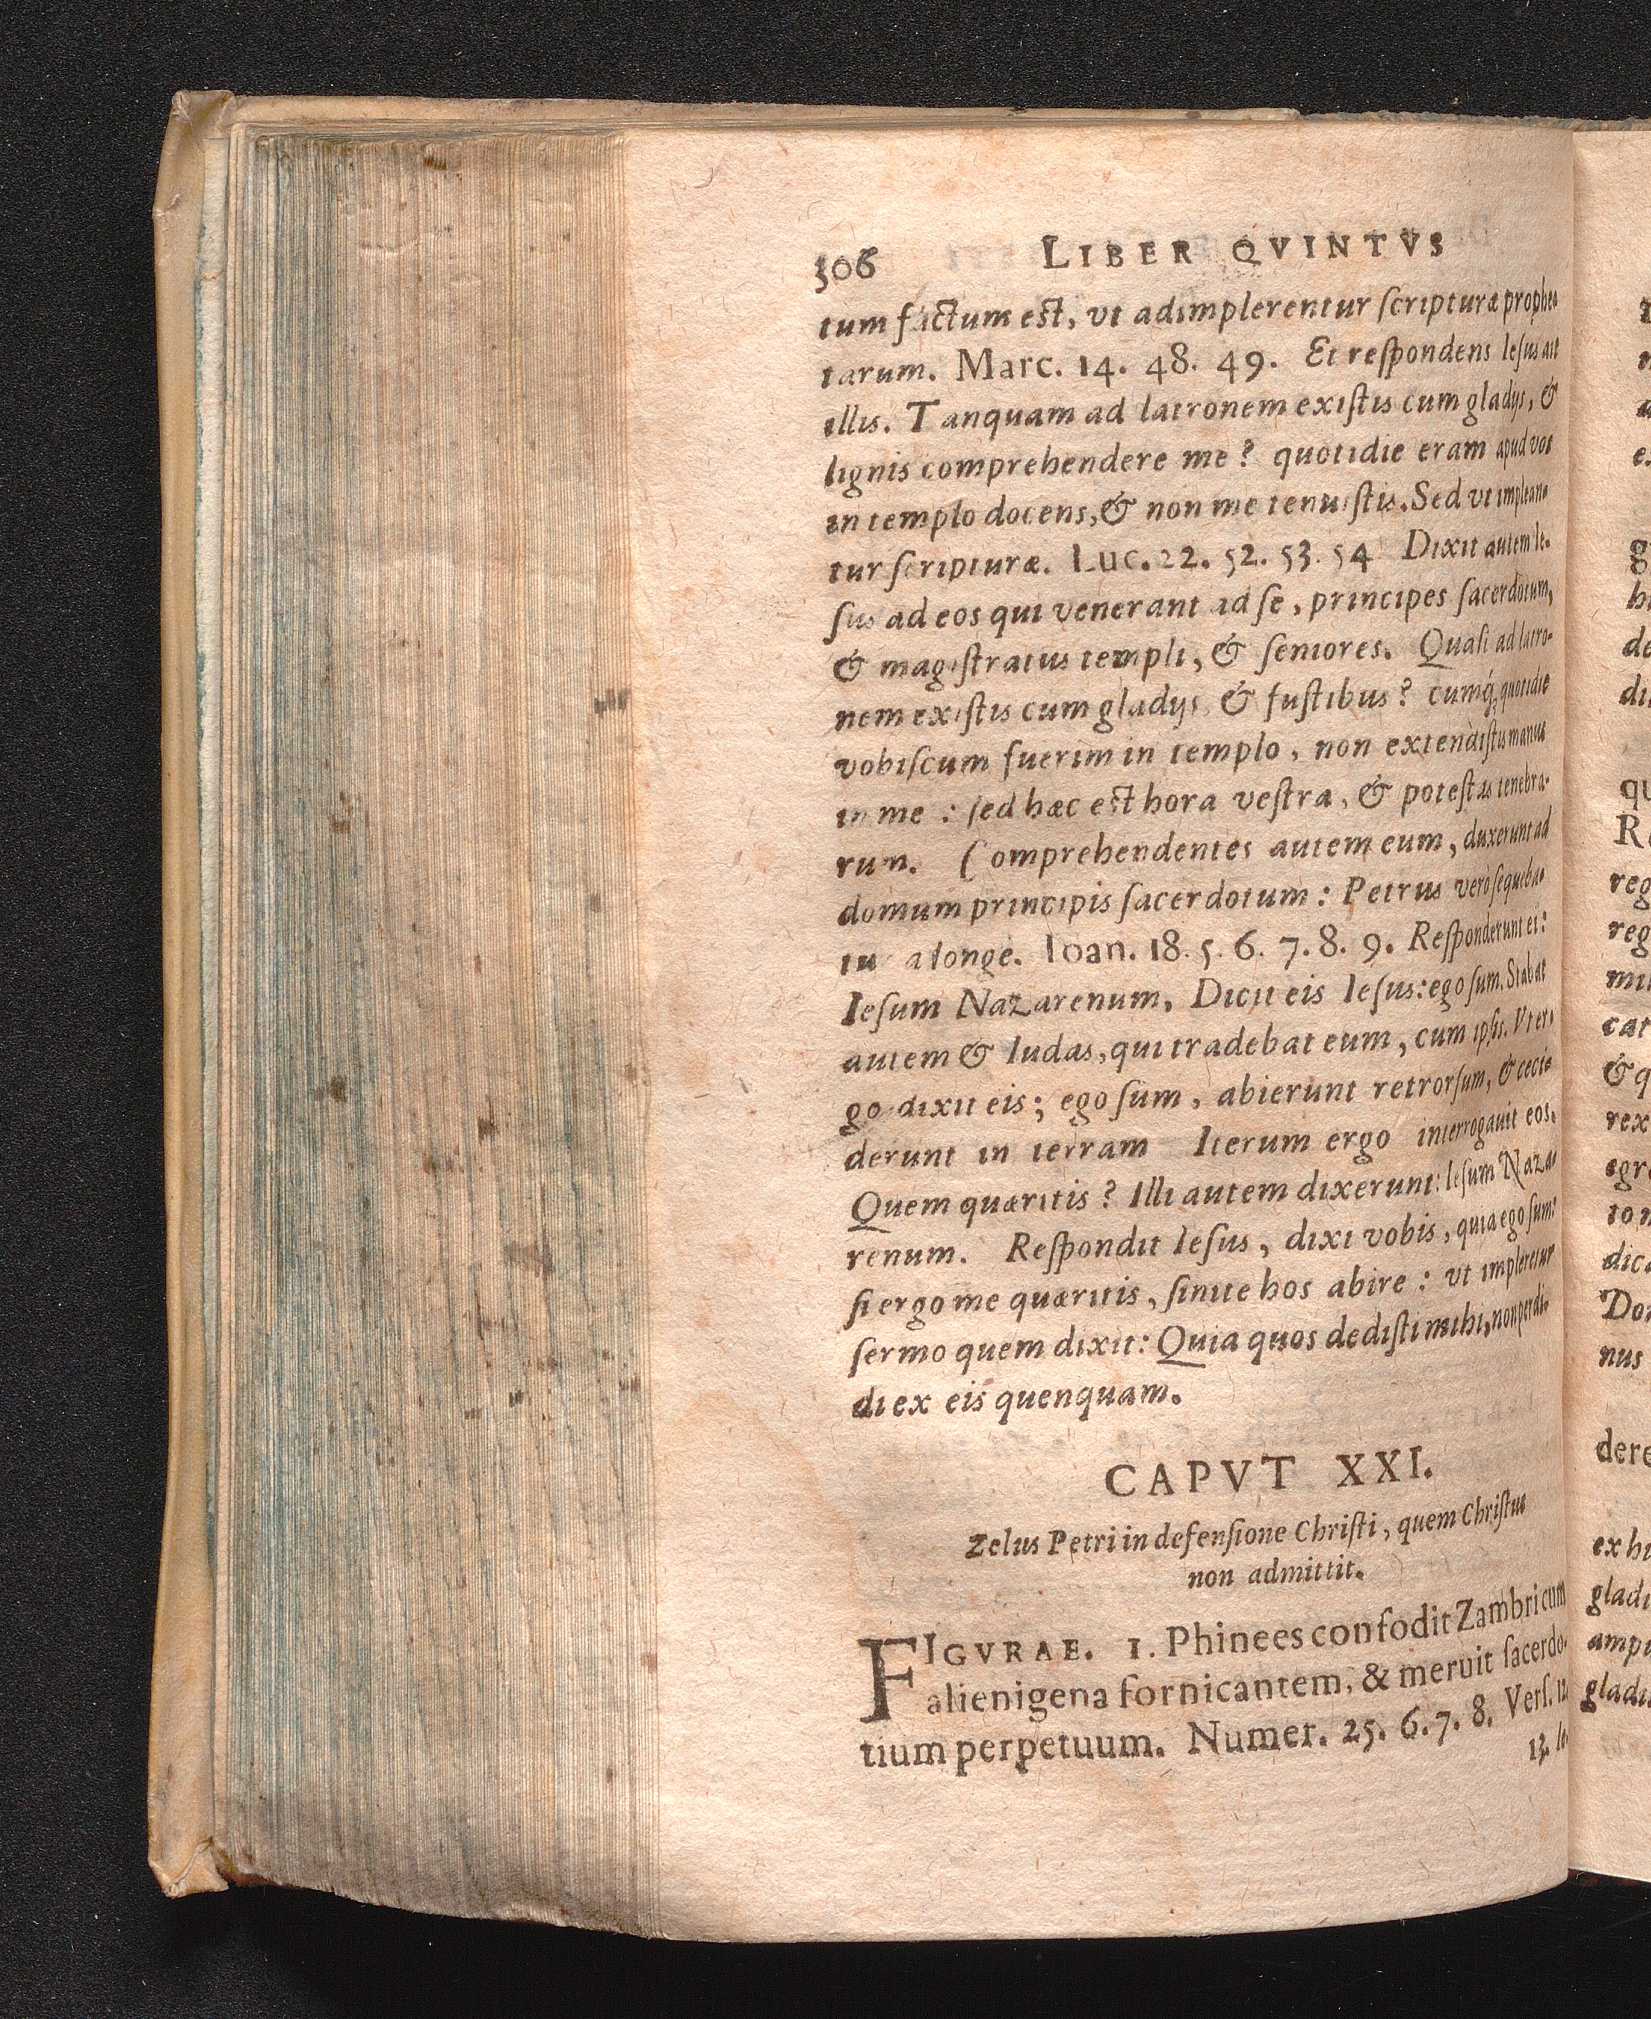 306 LIBER QVINTVS
tum factum est, vt adimplerentur scripturæ prophe-
tarum. Marc. 14. 48. 49. Et respondens Iesus ait
illis. Tanquam ad latronem existis cum gladijs, &
lignis comprehendere me? quotidie eram apud vos
in templo docens, & non me tenuistis. Sed vt implean-
tur scripturæ. Luc. 22. 52. 53. 54 Dixit autem Ie-
sus ad eos qui venerant ad se, principes sacerdotum,
& magistratus templi, & seniores. Quasi ad latro-
nem existis cum gladijs & fustibus? cumq́; quotidie
vobiscum fuerim in templo, non extendistis manus
in me: sed hæc est hora vestra, & potestas tenebra-
rum. Comprehendentes autem eum, duxerunt ad
domum principis sacerdotum: Petrus verò sequeba-
tur a longe. Ioan. 18. 5. 6. 7. 8. 9. Responderunt ei:
Iesum Nazarenum, Dicit eis Iesus: ego sum. Stabat
autem & Iudas, qui tradebat eum, cum ipsis. Vt er-
go dixit eis; ego sum, abierunt retrorsum, & ceci-
derunt in terram Iterum ergo interrogauit eos.
Quem quæritis? Illi autem dixerunt: Iesum Naza-
renum. Respondit Iesus, dixi vobis, quia ego sum:
si ergo me quæritis, sinite hos abire: vt impleretur
sermo quem dixit: Quia quos dedisti mihi, non perdi-
di ex eis quenquam.
CAPVT XXI.
Zelus Petri in defensione Christi, quem Christus
non admittit.
FIGVRAE. 1. Phinees confodit Zambri cum
alienigena fornicantem, & meruit sacerdo-
tium perpetuum. Numer. 25. 6. 7. 8. Vers. 12.
13.